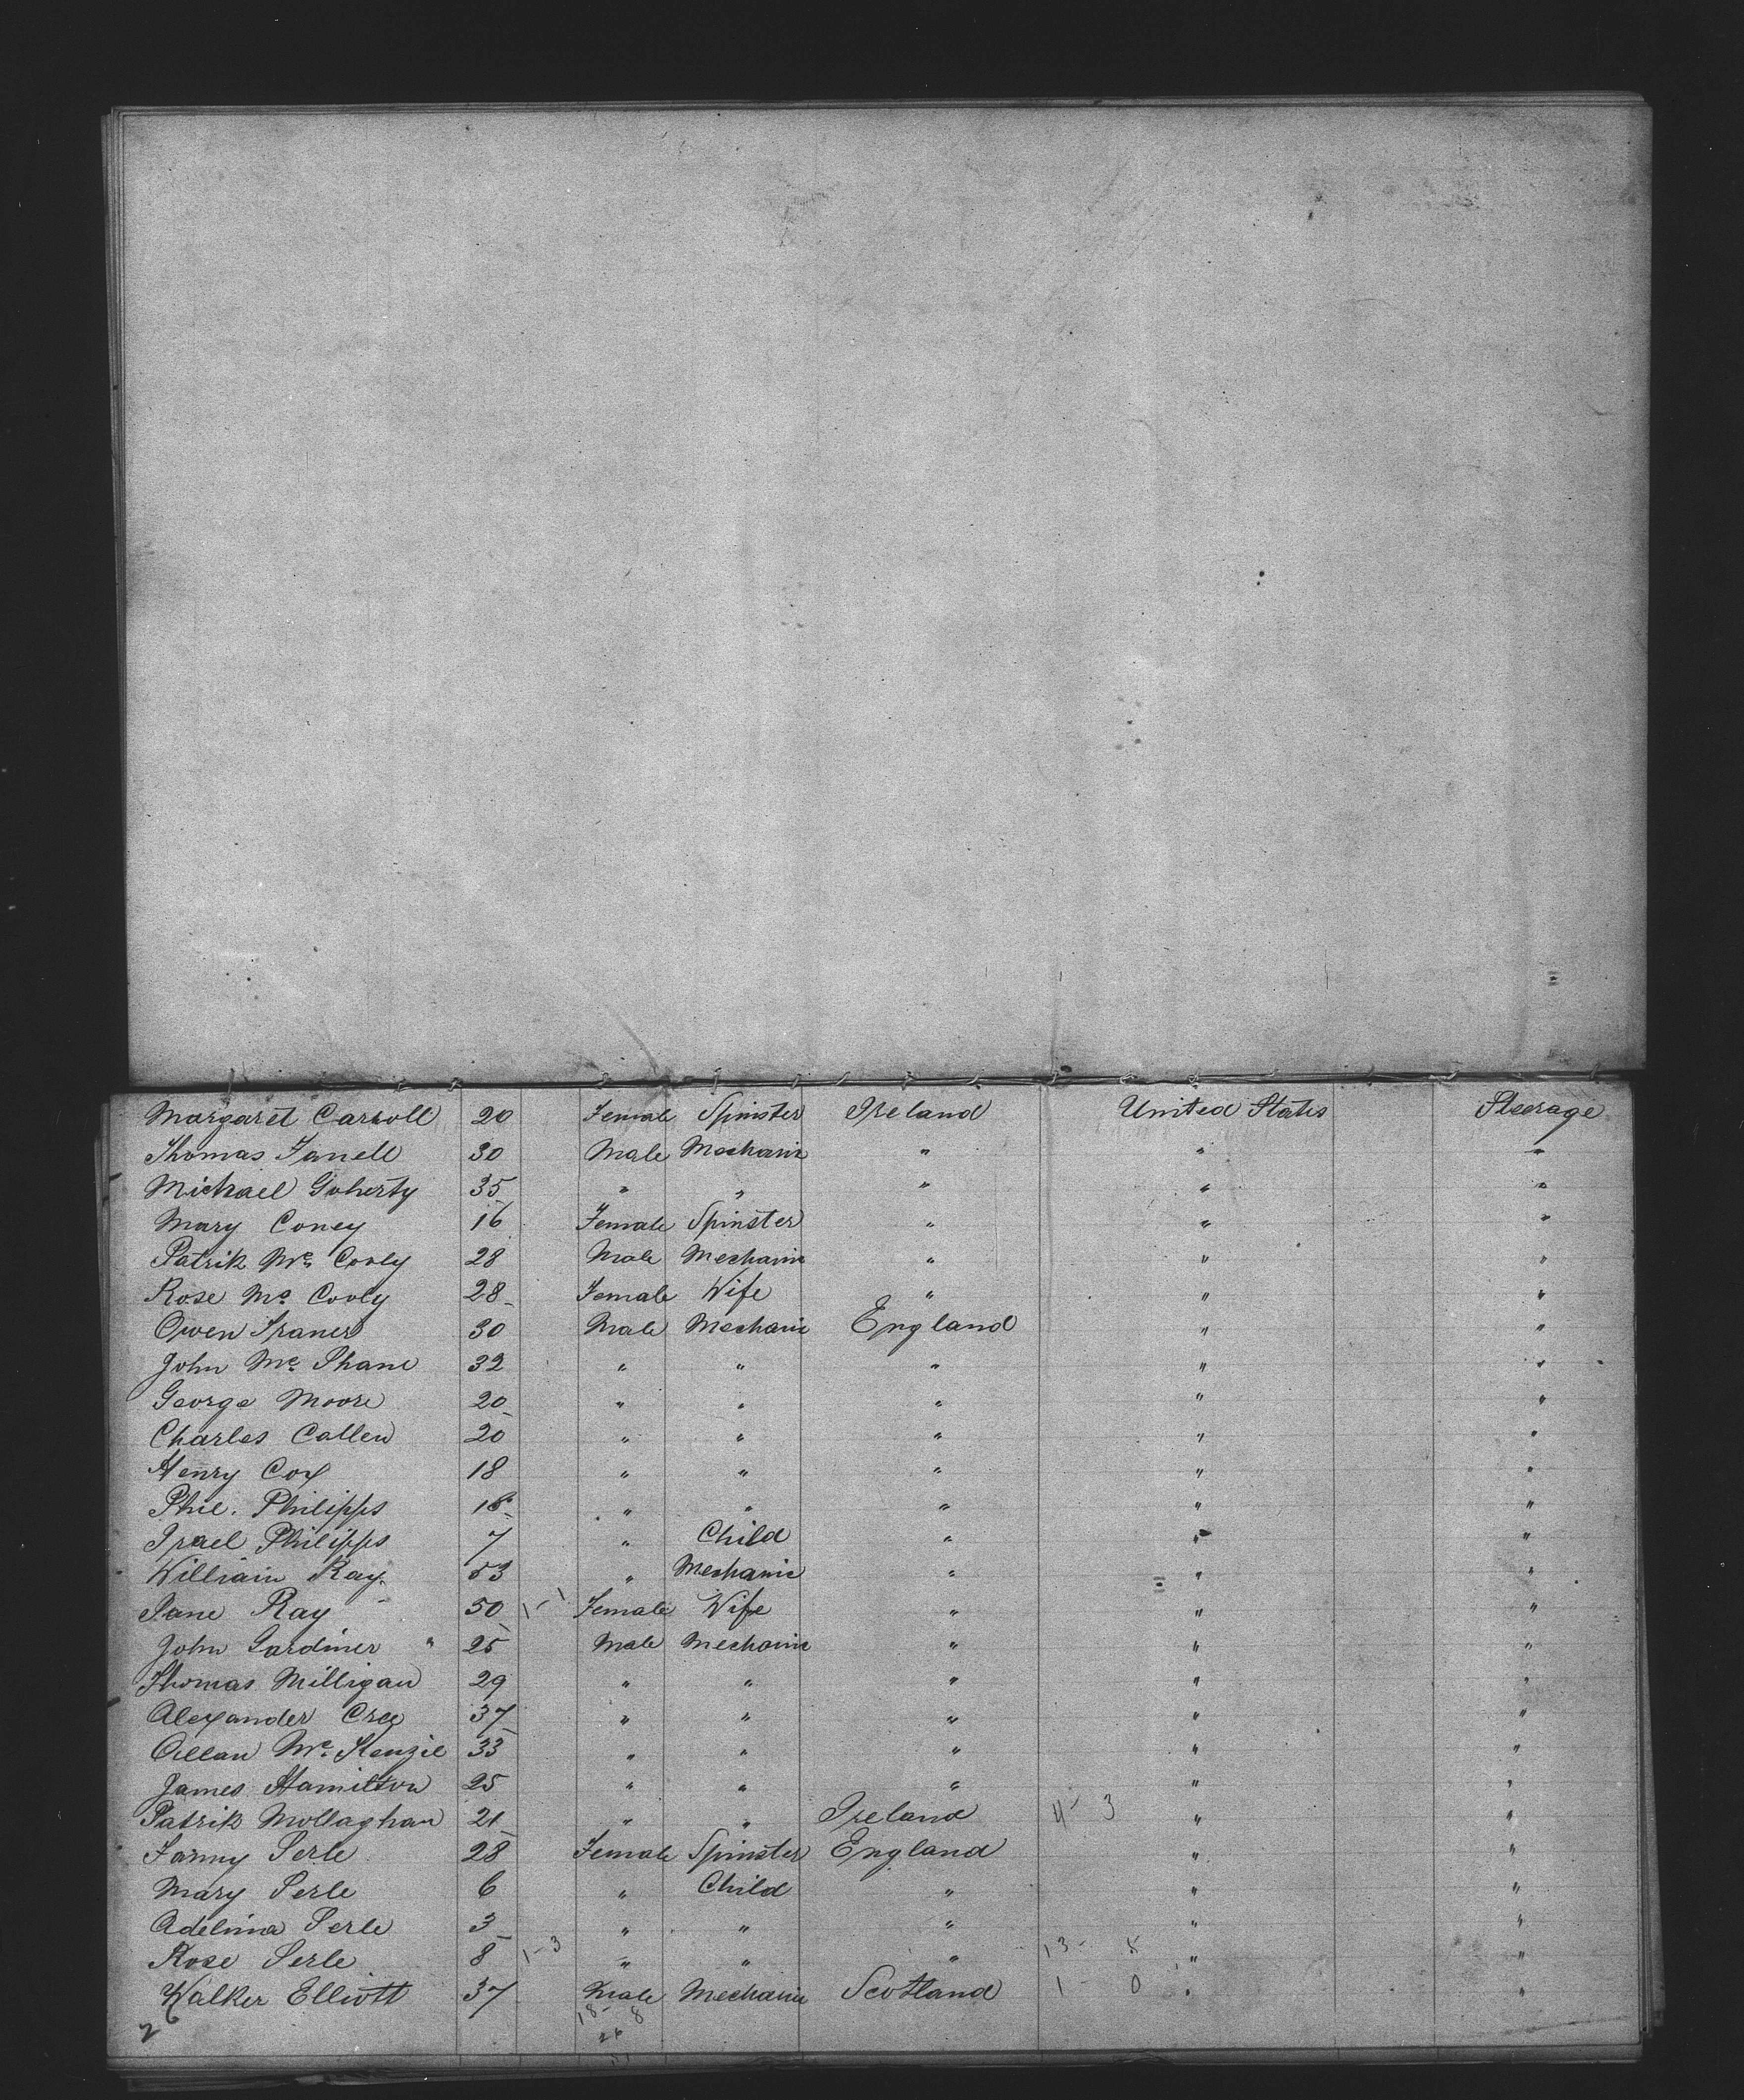 Margaret Carroll 20 Female Spinster Ireland United States Steerage
Thomas Fanell 30 Male Mechanic " " "
Michael Goherty 35 " " " " "
Mary Coney 16 Female Spinster " " "
Patrik Mc Cooly 28 Male Mechanic " " "
Rose Mc Cooly 28 Female Wife " " "
Owen Franer 30 Male Mechanic England " "
John Mc Shane 32 " " " " "
George Moore 20 " " " " "
Charles Callen 20 " " " " "
Henry Cox 18 " " " " "
Phil. Philipps 16 " " " " "
Israel Philipps 7 " Child " " "
William Ray 53 " Mechanic " " "
Jane Ray 50 1-1 Female Wife " " "
John Gardiner " 25 Male Mechanic " " "
Thomas Milligan 29 " " " " "
Alexander Cree 37 " " " " "
Allan Mc Kenzie 33 " " " " "
James Hamilton 25 " " " " "
Patrik Mollaghan 21 " " Ireland 4-3 " "
Fanny Serle 28 Female Spinster England " "
Mary Serle 6 " Child " " "
Adelina Serle 3 " " " " "
Rose Serle 8 1-3 " " " 13- 5 " "
Walker Elliott 37 Male Mechanic Scotland 1- 0 " "
26 18- 8
26